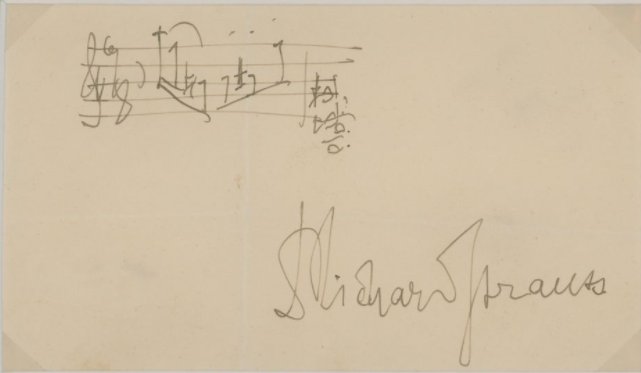 6
8
Richard Strauss